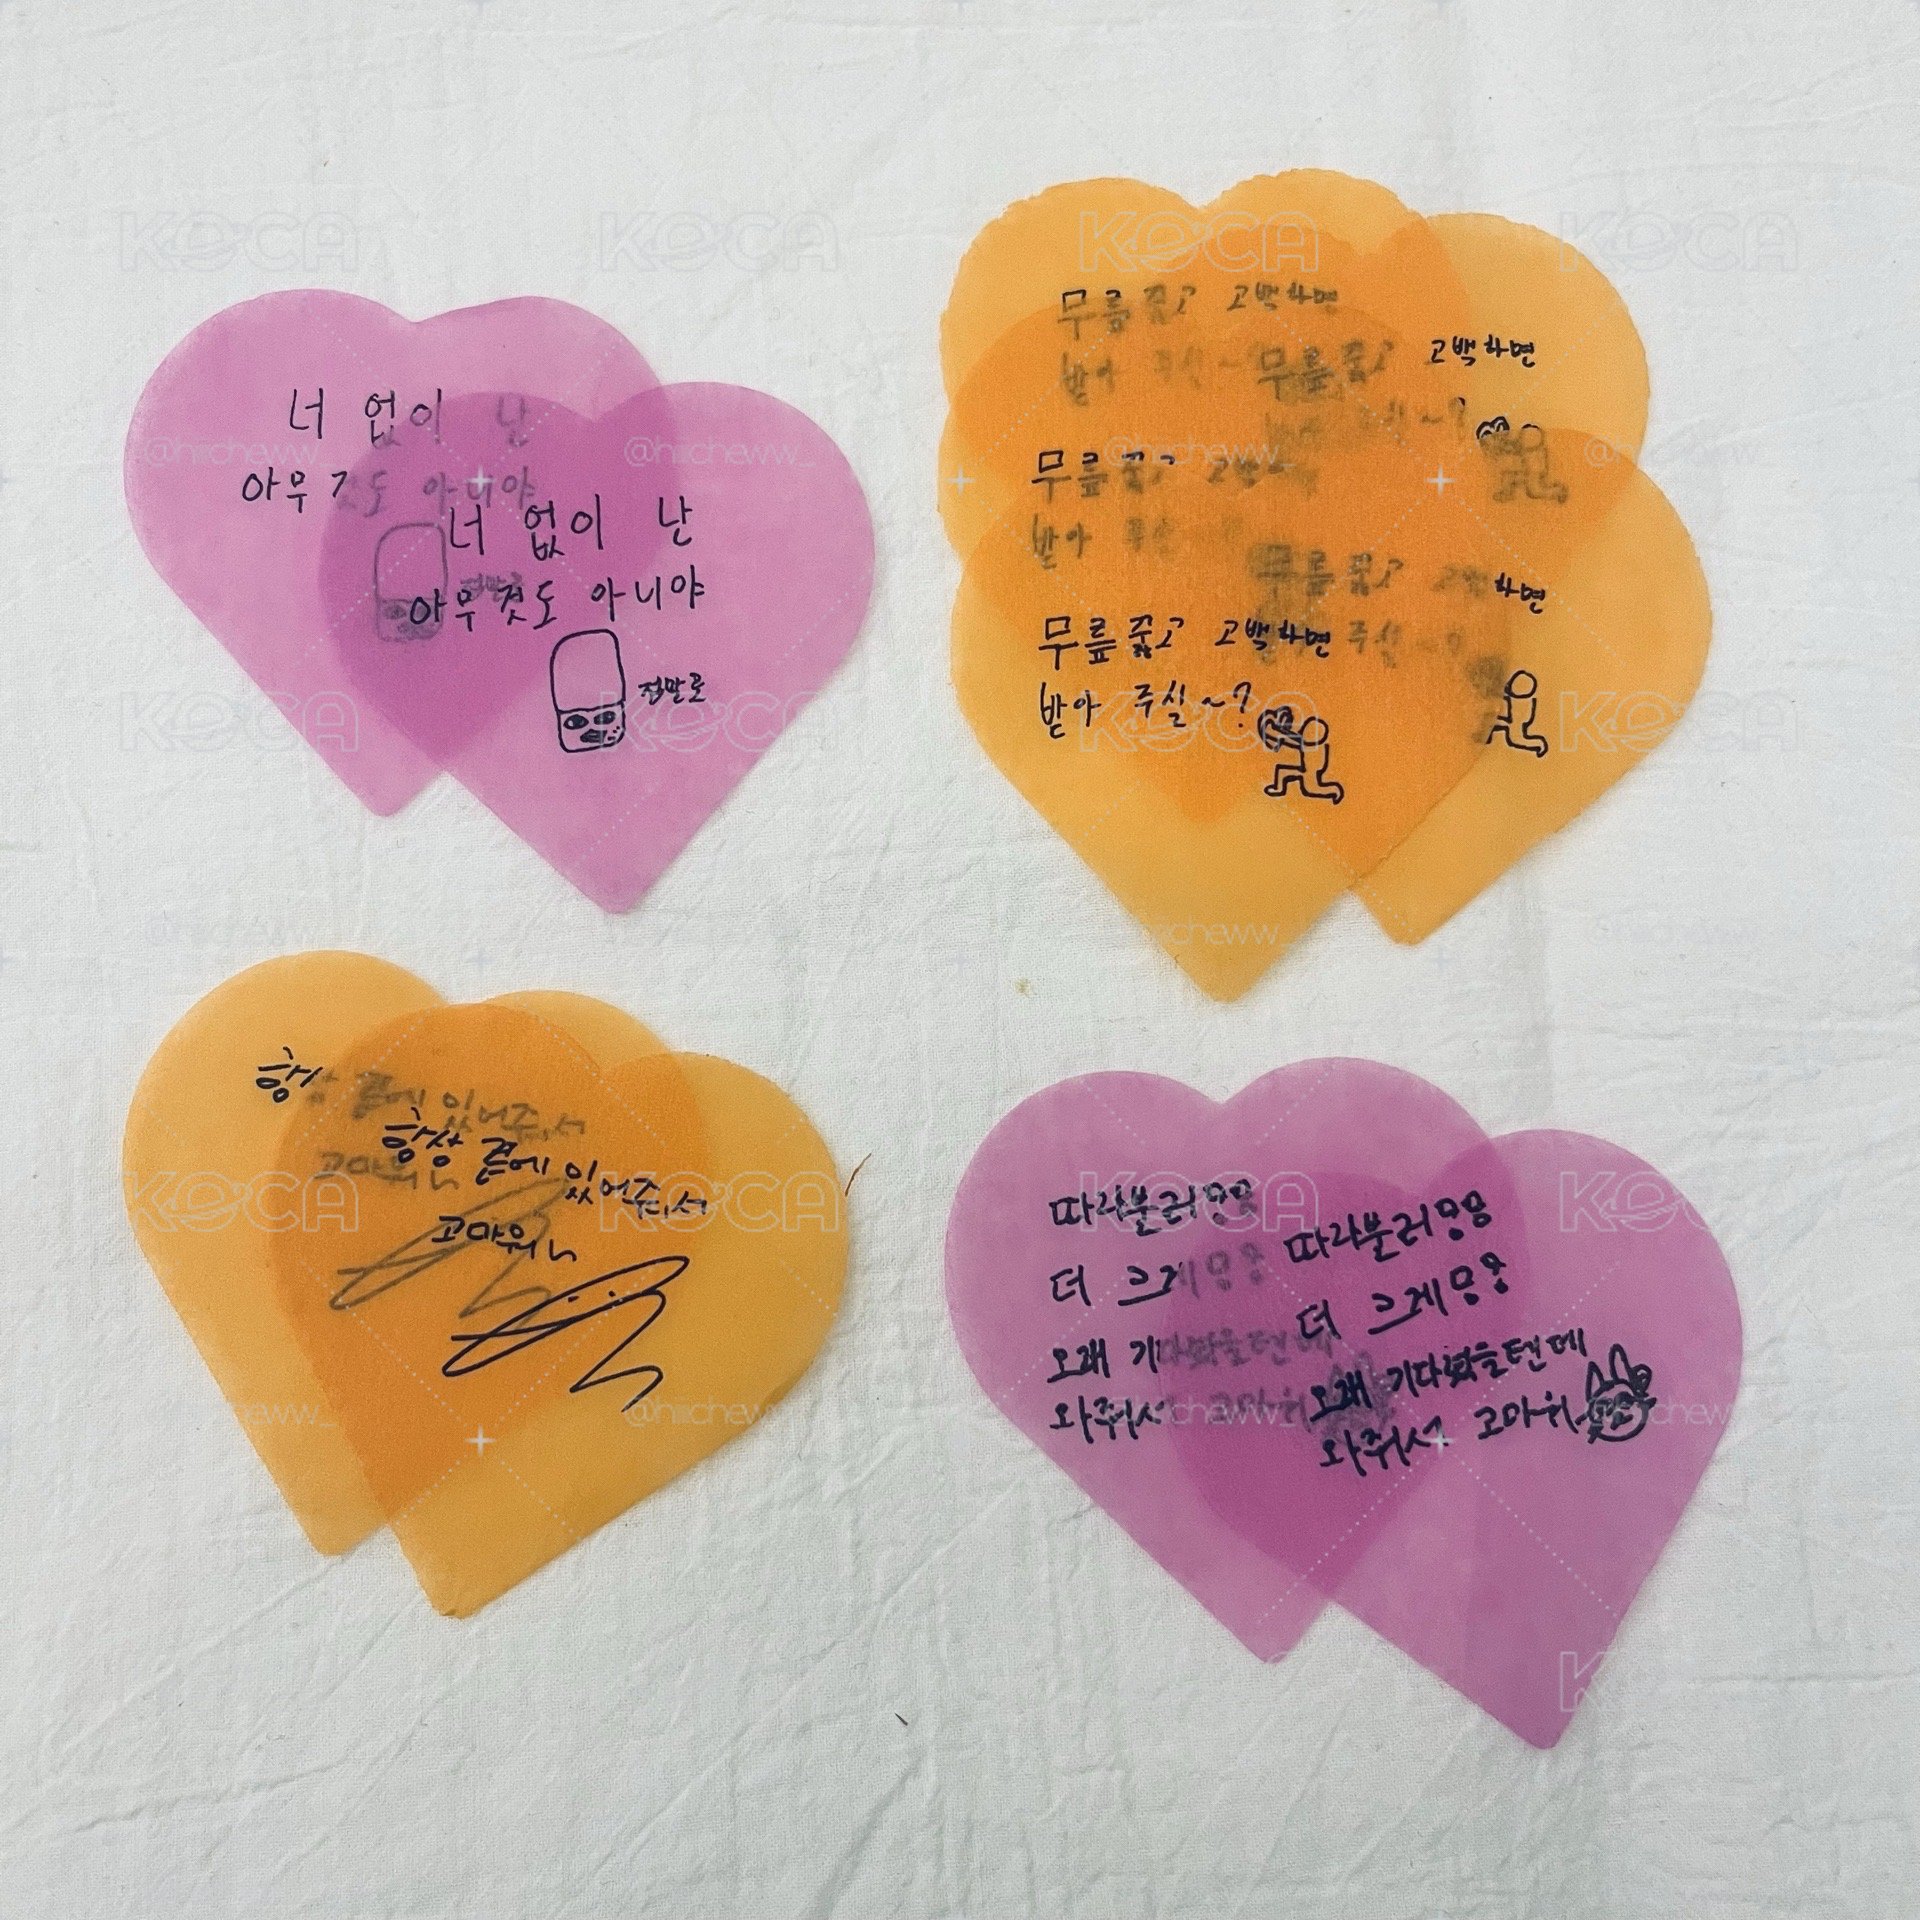 너 없이 난
아무것도 아니야
너 없이 난
아무것도 아니야
정말로
무릎 꿇고 고백하면
받아 주실~?
무릎 꿇고 고백하면
무릎 꿇고 고백
받아 주실
무릎 꿇고 고백하면
주실~?
무릎 꿇고 고백하면
받아 주실~?
항상 곁에 있어줘서
고마워
항상 곁에 있어줘서
고마워
따라불러
더 크게
오래 기다렸을텐데
와줘서 고마워
따라불러
더 크게
오래 기다렸을텐데
와줘서 고마워
KOCA
@hiicheww_